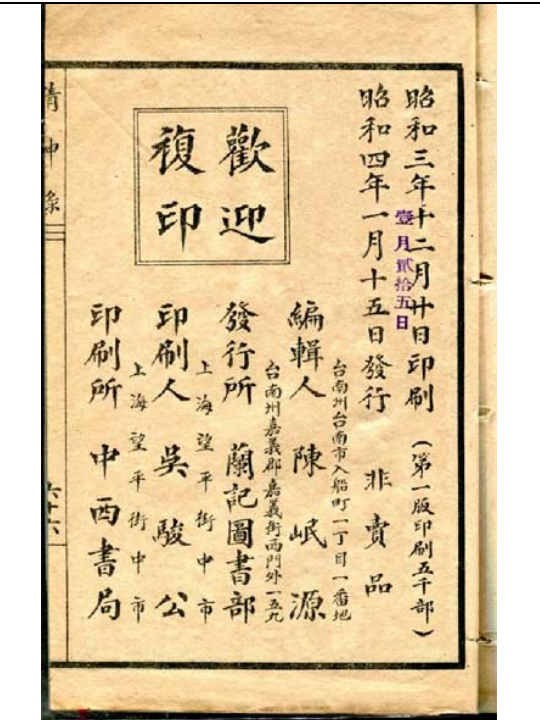 昭和三年十二月廿日印刷(第一版印刷五千部)
壹月貳拾五日
昭和四年一月十五日發行 非賣品
歡迎
複印
台南州台南市入船町一丁目一番地
編輯人 陳岷源
台南州嘉義郡嘉義街西門外一五九
發行所 蘭記圖書部
上海望平街中市
印刷人 吳駿公
上海望平街中市
印刷所 中西書局
精神錄
六十六